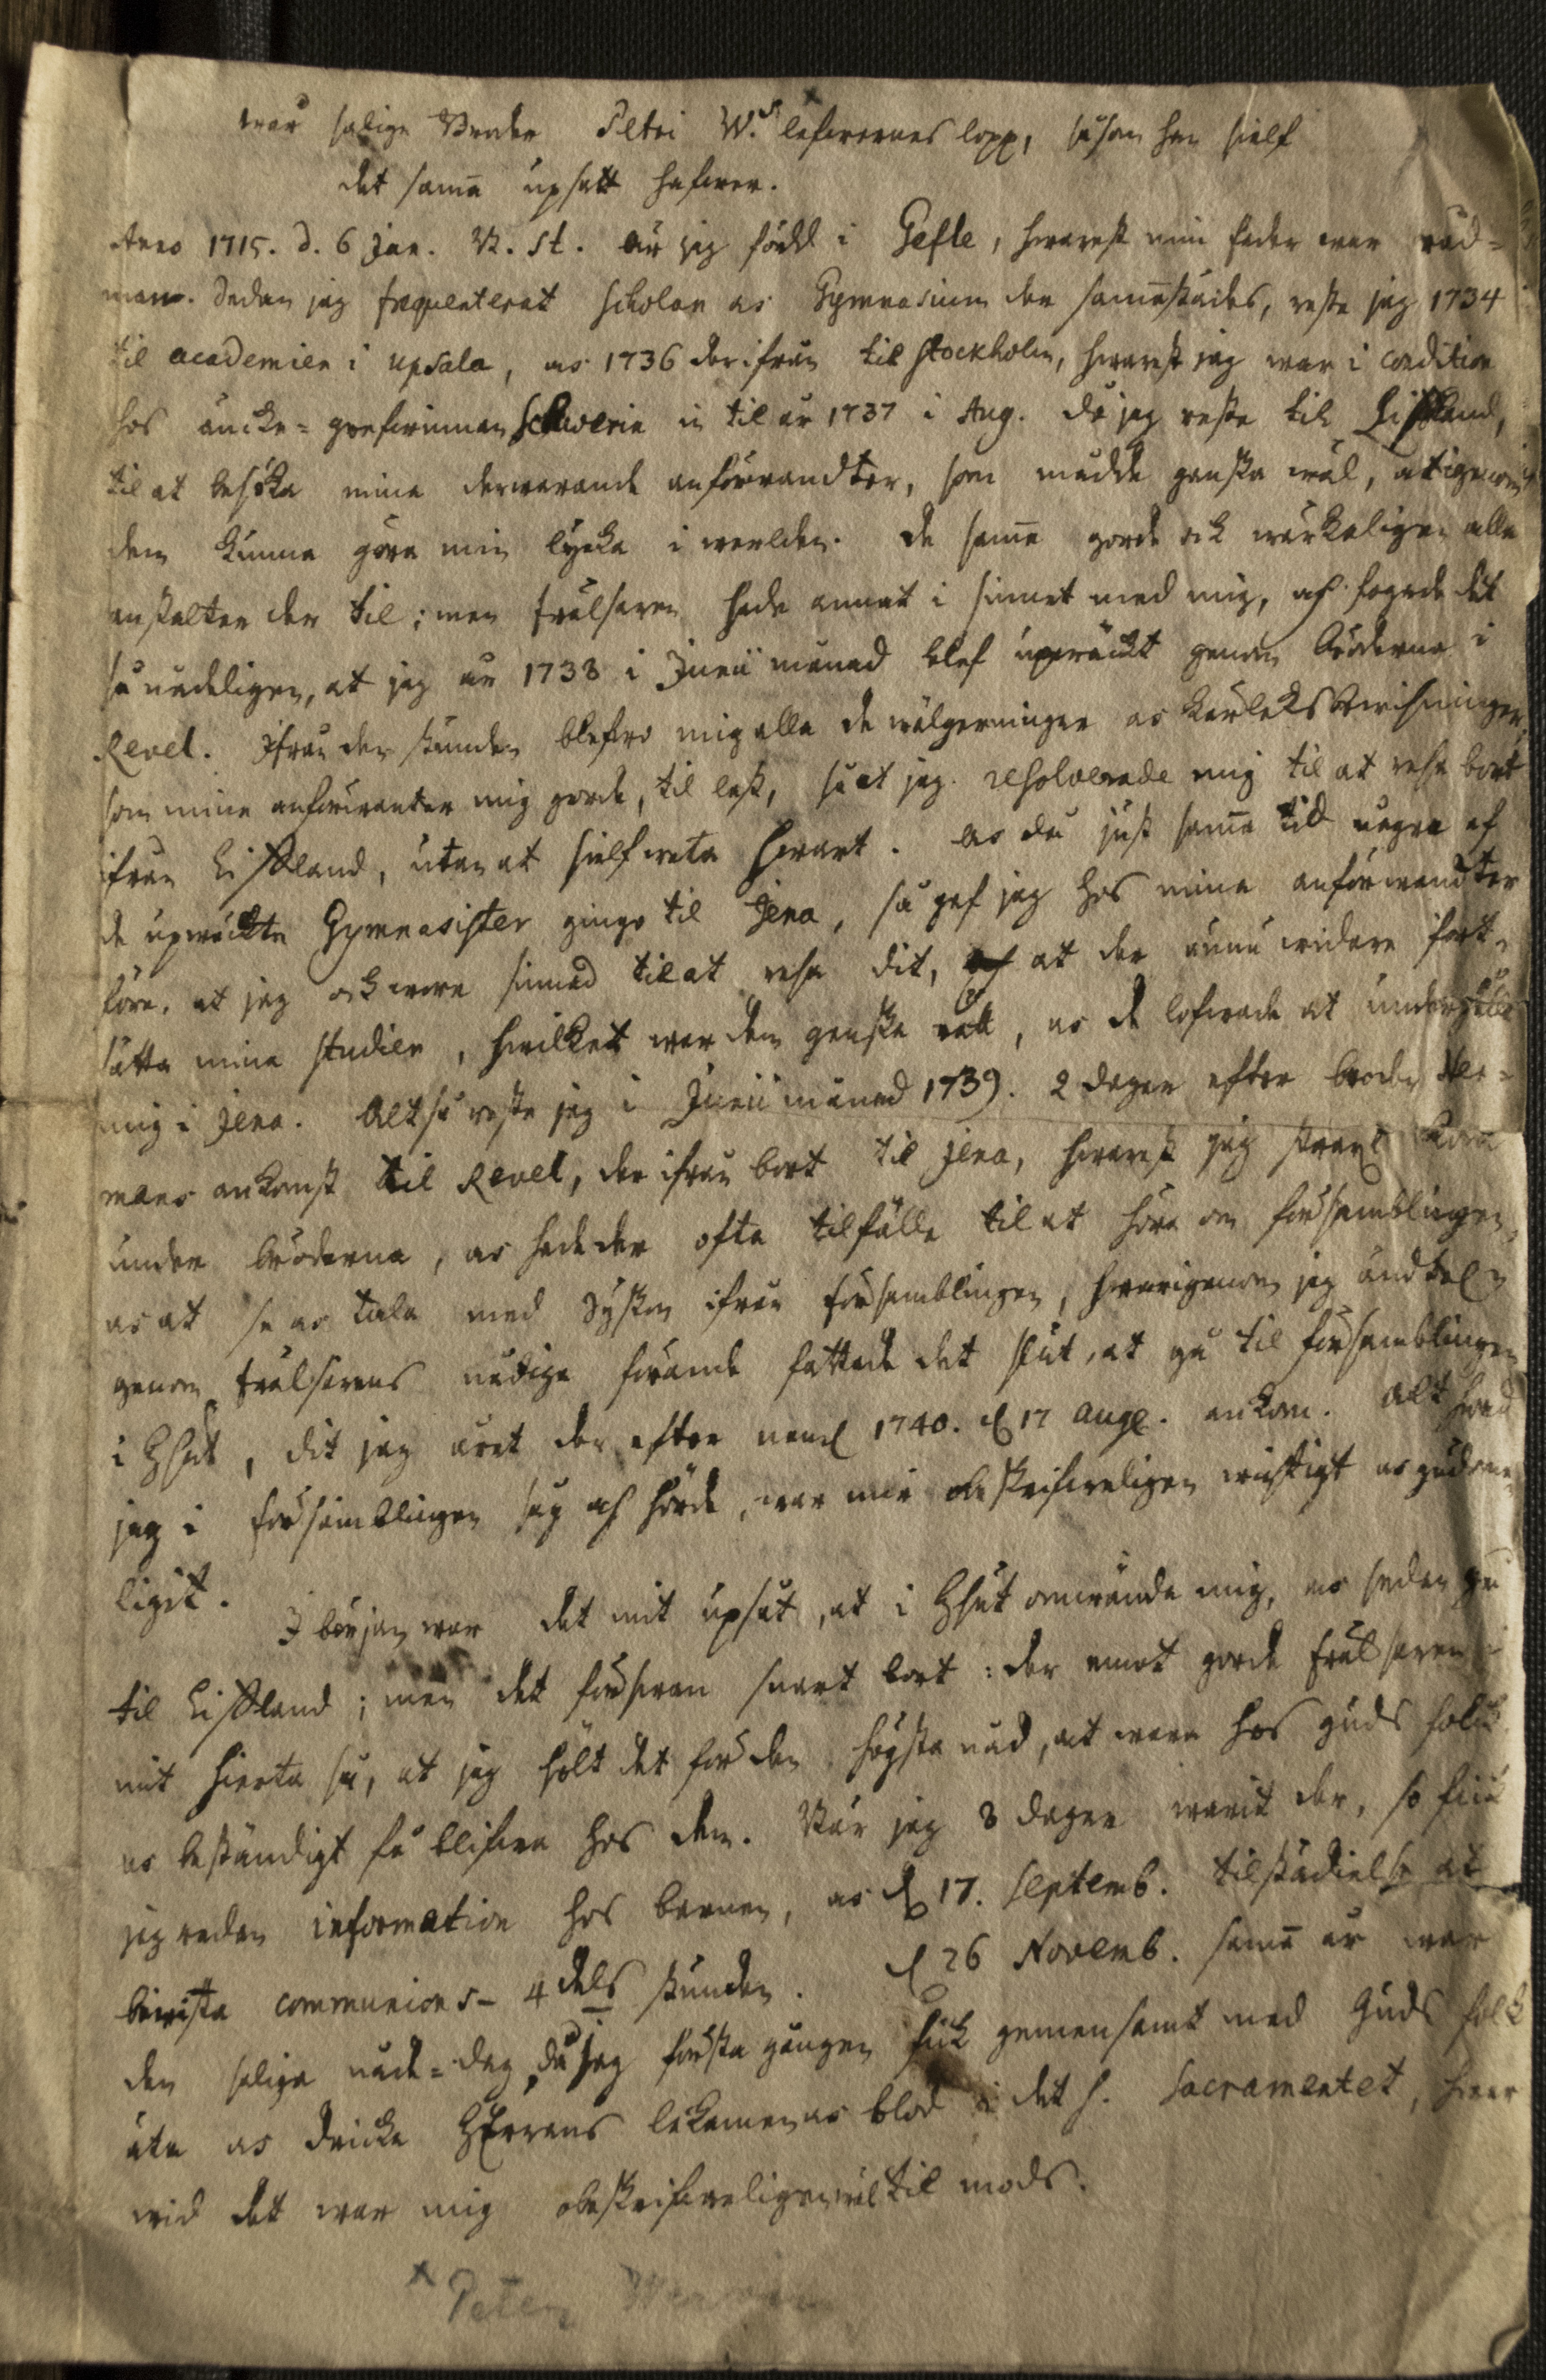 wår salige Broder Petri W.s lefwernes lopp, såsom han sielf
det samma upsatt hafwer.
Anno 1715. d. 6 Jan. N. St. är jag född i Gefle, hwarest min fader war råd=
man. Sedan jag frequenterat scholan os Gymnasium der samastädes, reste jag 1734
til academien i Upsala, os 1736 derifrån til Stockholm, hwarest jag war i condition
hos äncke=grefwinnan Schwerin in til år 1737 i Aug. då jag reste til Lifland,
til at besöka mina derwarande anförwandter, som mådde ganska wäl, at igenom
dem kunna göra min lycka i werlden. De sama gorde ock wärkeligen alla
anstalter der til; men frälsaren hade annat i sinnet med mig, os fogade det
så nådeligen, at jag år 1738 i Junii månad blef upwäckt genom bröderna i
Revel. Ifrån den stunden blefwo mig alla de wälgerningar os kärleks bewisningar,
som mina anförwanter mig gorde, til last, så at jag resolverade mig til at resa bort
ifrån Lifland, utan at sielf weta hwart. os då just sama tid några af
de upwäckta Gymnasister gingo til Jena, så gaf jag hos mina anförwandter
före, at jag ock wore sinnad til at resa dit, at der ännu widare fort=
sätta mina studier, hwilket war dem ganska rätt, os de lofwade at underhålla
mig i Jena. Altså reste jag i Junii månad 1739. 2 dagar efter broder Her=
mans ankomst til Revel, der ifrån bort til Jena, hwarest jag straxt kom
under bröderna, os hade der ofta tilfälle til at höra om församblingen,
os at se os tala med Syskon ifrån församblingen, hwarigenom jag ändtel.n
genom frälsarens nådiga förande fattade det slut, at gå til församblingen
i Hhut, dit jag året der efter neml 1740. d 17 Aug. ankom. Alt hwad
jag i församblingen såg os hörde, war mir obeskrifweligen wichtigt os gudome
ligit.
I början war det mit upsåt, at i Hhut omwända mig, os sedan gå
til Lifland; men det förswan snart bort: der emot gorde frälsaren i
mit hierta så, at jag hölt det för den högsta nåd, at wara hos Guds folk
os beständigt få blifwa hos dem. När jag 8 dagar warit der, så fick
jag redan information hos barnen, os d 17. Septemb. tilstädielse at
biwista communions- 4dels stunden. d 26 Novemb. sama år war
den salige nåde=dag, då jag första gången fick gemensamt med Guds folk
äta os dricka HErrans lekamen os blod i det h. Sacramentet, hwar
wid det war mig obeskrifweligen wäl til mods.
x Peter